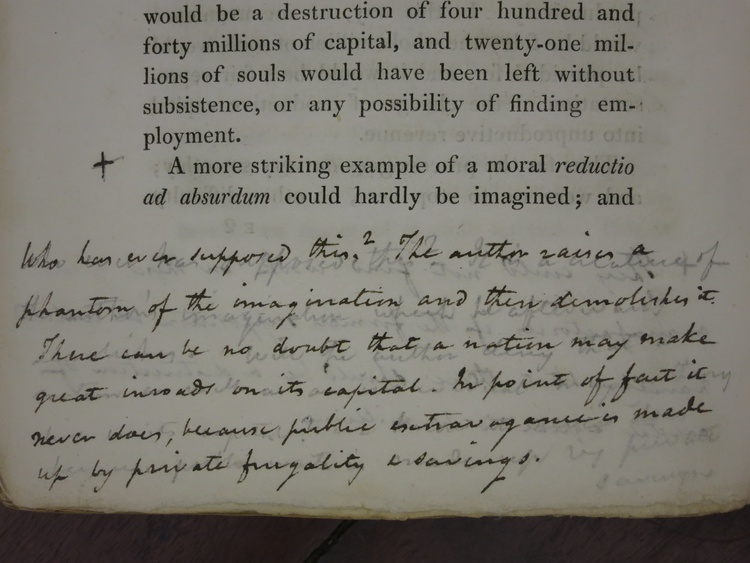 would be a destruction of four hundred and
forty millions of capital, and twenty-one mil-
lions of souls would have been left without
subsistence, or any possibility of finding em-
ployment.
+ A more striking example of a moral reductio
ad absurdum could hardly be imagined; and
Who has ever supposed this? The author raises a
phantom of the imagination and then demolishes it.
There can be no doubt that a nation may make
great inroads on its capital. In point of fact it
never does, because public extravagance is made
up by private frugality & savings.